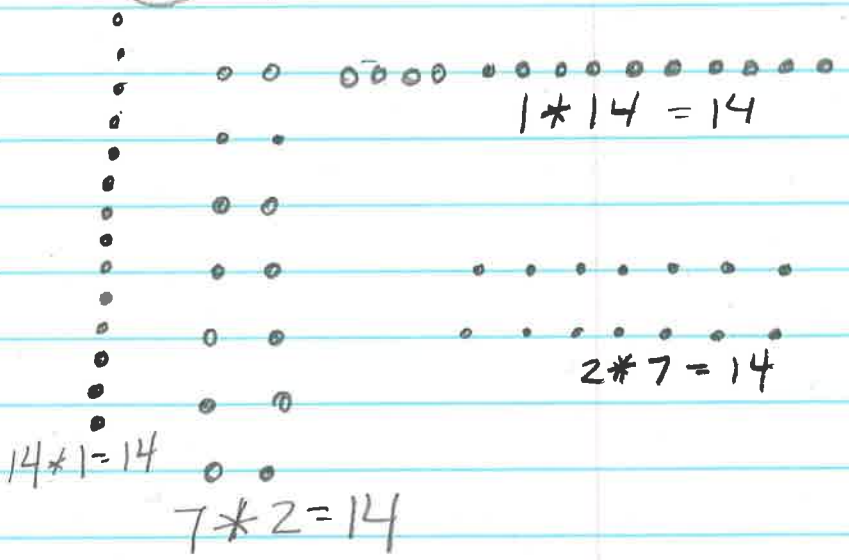 1 * 14 = 14
2 * 7 = 14
14 * 1 = 14
7 * 2 = 14